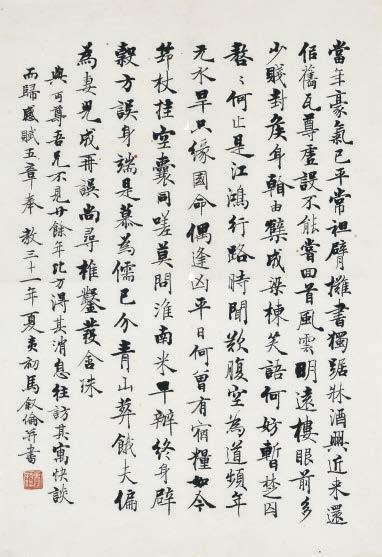 當年豪氣已平常袒臂攤書獨踞牀酒興近来還
佀舊瓦尊虚設不能嘗回首風雲明遠樓眼前多
少賤封矦身翰由糵成梁棟笑語何妨暫楚囚
嗸〻何止是江鴻行路時聞歎腹空為道頻年
无水旱只緣國命偶逢凶平日何曾有宿糧如今
筇杖挂空囊同嗟莫問淮南米早辦終身辟
穀方誤身端是慕為儒已分青山葬餓夫偏
為妻兒成再誤尚尋椎鑿發含珠
與可尊吾兄不見廿餘年比方得其消息往訪其寓快談
而歸感賦五章奉教三十一年夏夷初馬叙倫并書